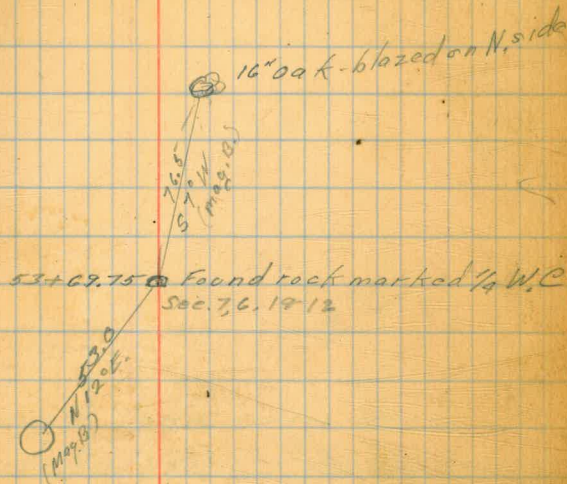 16" oak - blazed on N. side
76.5
S 7° W
(Mag. B.)
53+69.75 Found rock marked 1/4 W.C
Sec. 7, 6, 19-12
53.0
N 12° E.
(Mag. B.)